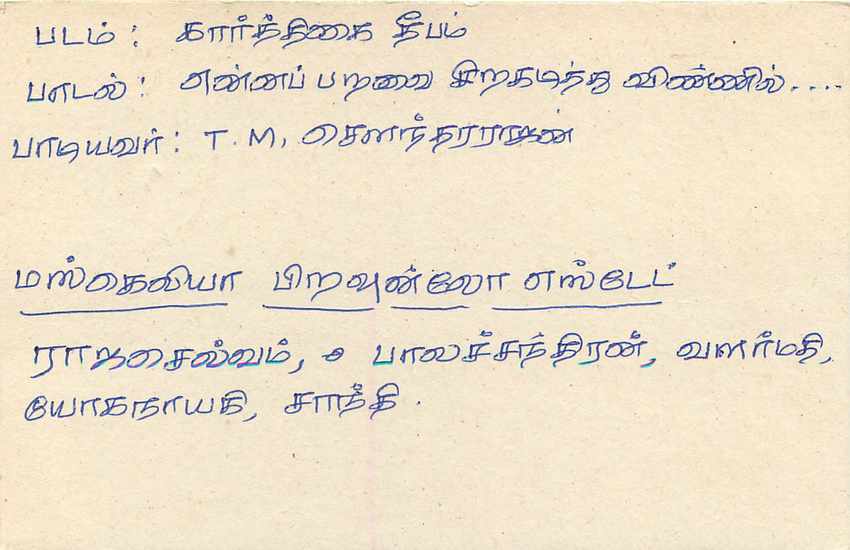 படம் : கார்த்திகை தீபம்
பாடல் : என்னப் பறவை சிறகடித்து விண்ணில்....
பாடியவர் : T. M. சௌந்தரராஜன்
மஸ்கெலியா பிரவுன்லோ எஸ்டேட்
ராஜசெல்வம், பாலச்சந்திரன், வளர்மதி,
யோகநாயகி, சாந்தி.